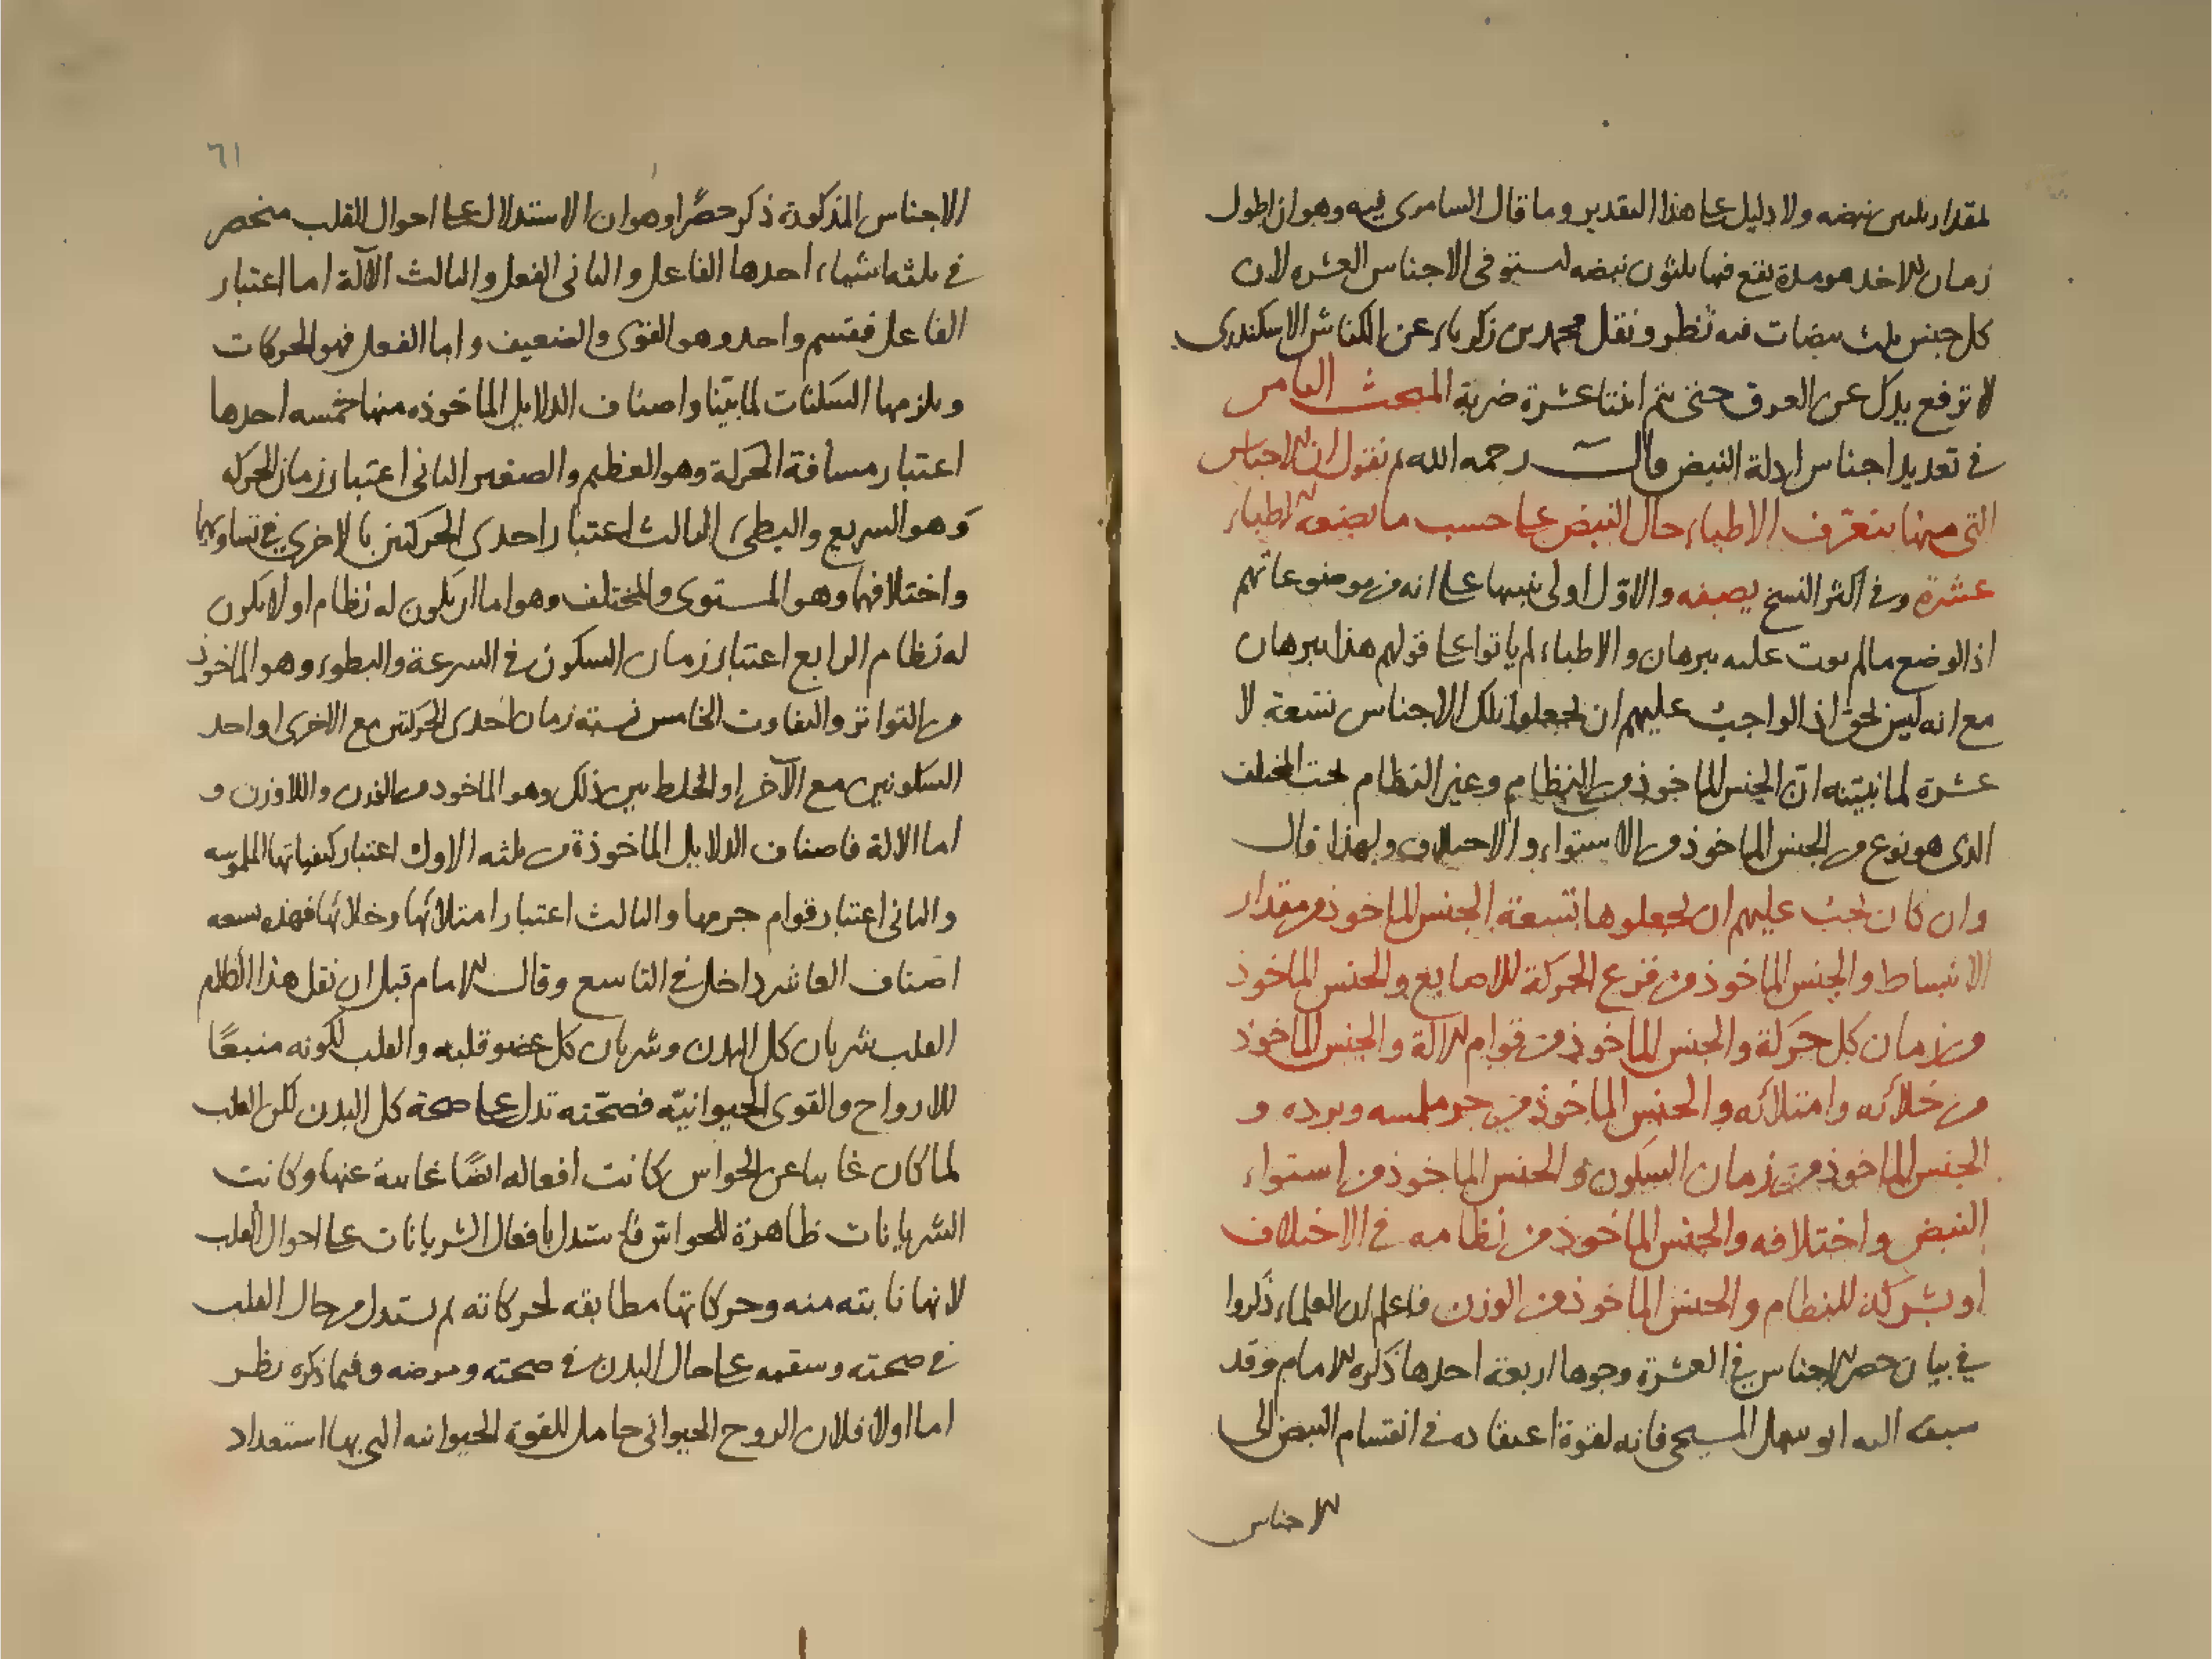 لمقدار ثلثين نبضه ولا دليل على هذا التقدير وما قال السامرى فيه وهو ان اطول
زمان الاخذ هو مدة يقع فيها ثلثون نبضه لستوفى الاجناس العشره لان
كل جنس ثلث نبضات فيه نظر ونقل محمد بن زكرياء عن الكناش الاسكندرى
لا ترفع يدك عن العرق حتى يتم اثنتا عشرة ضربة المبحث الثامن
فى تعديد اجناس ادلة النبض قال رحمه الله ثم نقول ان الاجناس
التى منها يتعرّف الاطباء حال النبض على حسب ما يضعه الاطباء
عشرة وفى اكثر النسخ يصفه والاوّل اولى تنبيها على انه من موضوعاتهم
اذ الوضع ما لم يوت عليه ببرهان والاطباء لم ياتوا على قولهم هذا ببرهان
مع انه ليس بحق اذ الواجب عليهم ان يجعلوا تلك الاجناس تسعة لا
عشرة لما نبيّنه انّ الجنس الماخوذ من النظام وغير النظام تحت المختلف
الذى هو نوع من الجنس الماخوذ من الاستواء والاختلاف ولهذا قال
وان كان يجب عليهم ان يجعلوها تسعة الجنس الماخوذ من مقدار
الانبساط والجنس الماخوذ من قرع الحركة للاصابع والجنس الماخوذ
من زمان كل حركة والجنس الماخوذ من قوام الالة والجنس الماخوذ
من خلائه وامتلائه والجنس الماخوذ من حر ملمسه وبرده و
الجنس الماخوذ من زمان السكون والجنس الماخوذ من استواء
النبض واختلافه والجنس الماخوذ من نظامه فى الاختلاف
او تركه للنظام والجنس الماخوذ من الوزن فاعلم ان العلماء ذكروا
فى بيان حصر الاجناس فى العشرة وجوها اربعة احدها ذكره الامام وقد
سبقه اليه ابو سهل المسيحى فانه لقوة اعتقاده فى انقسام النبض الى
الاجناس
٦١
الاجناس المذكورة ذكر حصرًا وهو ان الاستدلال على احوال القلب منحصر
فى ثلثه اشياء احدها الفاعل والثانى الفعل والثالث الآلة اما اعتبار
الفاعل فقسم واحد وهو القوى والضعيف واما الفعل فهو الحركات
ويلزمها السكنات لما بيّنا واصناف الدلايل الماخوذه منها خمسه احدها
اعتبار مسافة الحركة وهو العظيم والصغير الثانى اعتبار زمان الحركه
وهو السريع والبطى الثالث اعتبار احدى الحركتين بالاخرى فى تساويهما
واختلافهما وهو المستوى والمختلف وهو اما ان يكون له نظام او لا يكون
له نظام الرابع اعتبار زمان السكون فى السرعة والبطوء وهو الماخوذ
من التواتر والتفاوت الخامس نسبته زمان احدى الحركتين مع الاخرى او احد
السكونين مع الآخر او الخلط بين ذلك وهو الماخوذ من الوزن واللاوزن و
اما الالة فاصناف الدلايل الماخوذة من ثلثه الاول اعتبار كيفياتها الملموسه
والثانى اعتبار قوام جرمها والثالث اعتبار امتلائها وخلائها فهذه تسعه
اصناف العاشر داخل فى التاسع وقال الامام قبل ان نقل هذا الكلام
القلب شريان كل البدن وشريان كل عضو قلبه والقلب لكونه منبعًا
للارواح والقوى الحيوانيّه فصحّته تدل على صحة كل البدن لكن القلب
لما كان غايبا عن الحواس كانت افعاله ايضًا غايبة عنها وكانت
الشريانات ظاهرة للحواس فاستدل بافعال الشريانات على احوال القلب
لانها نابته منه وحركاتها مطابقه لحركاته ثم يستدل من حال القلب
فى صحته وسقمه على حال البدن فى صحته ومرضه وفيما ذكره نظر
اما اولا فلان الروح الحيوانى حامل للقوة الحيوانيه التى بها استعداد